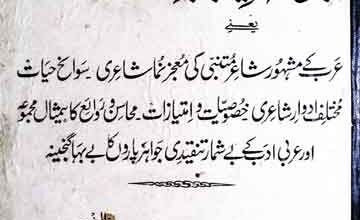 یعنے
عرب کے مشہور شاعر متنبی کی معجز نما شاعری سوانح حیات
مختلف ادوار شاعری خصوصیات و امتیازات۔ محاسن و روایع کا بیمثال مجموعہ
اور عربی ادب کے بے شمار تنقیدی جواہر پاروں کا بے بہا گنجینہ